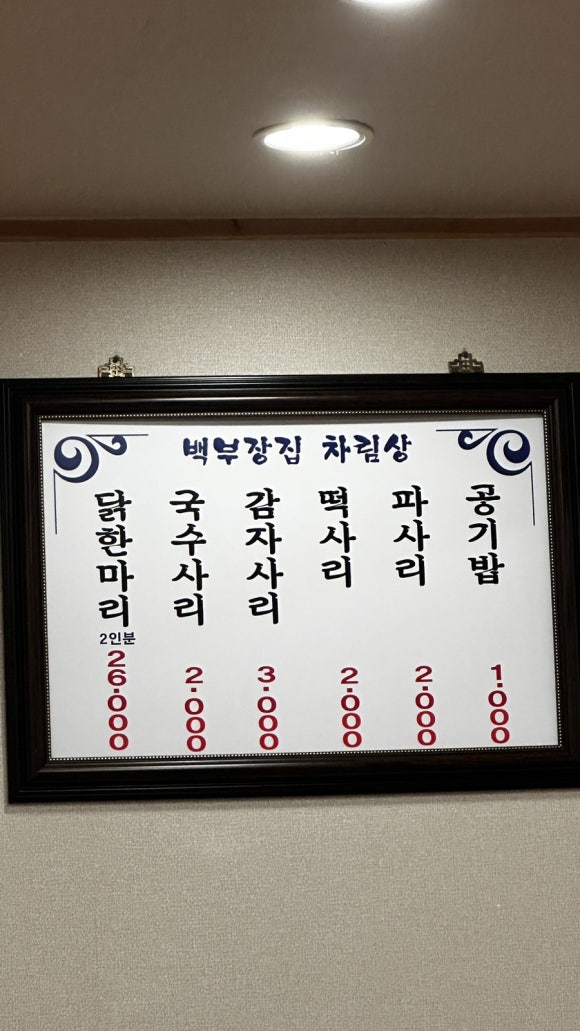 백부장집 차림상
닭한마리
2인분
26.000
국수사리
2.000
감자사리
3.000
떡사리
2.000
파사리
2.000
공기밥
1.000